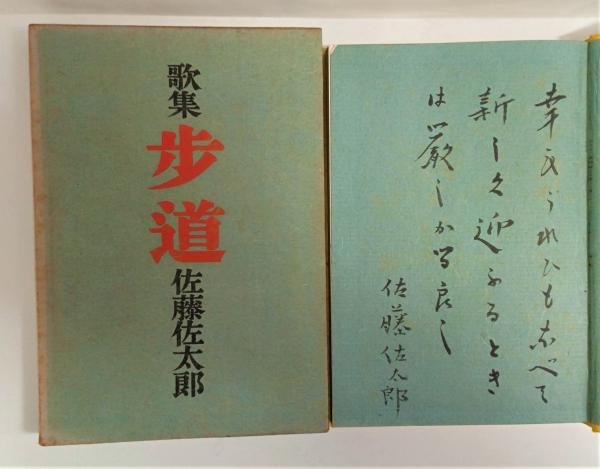 歌集
歩道
佐藤佐太郎
幸もうれひもなべて
新しく迎ふるとき
は厳しか良し
佐藤佐太郎